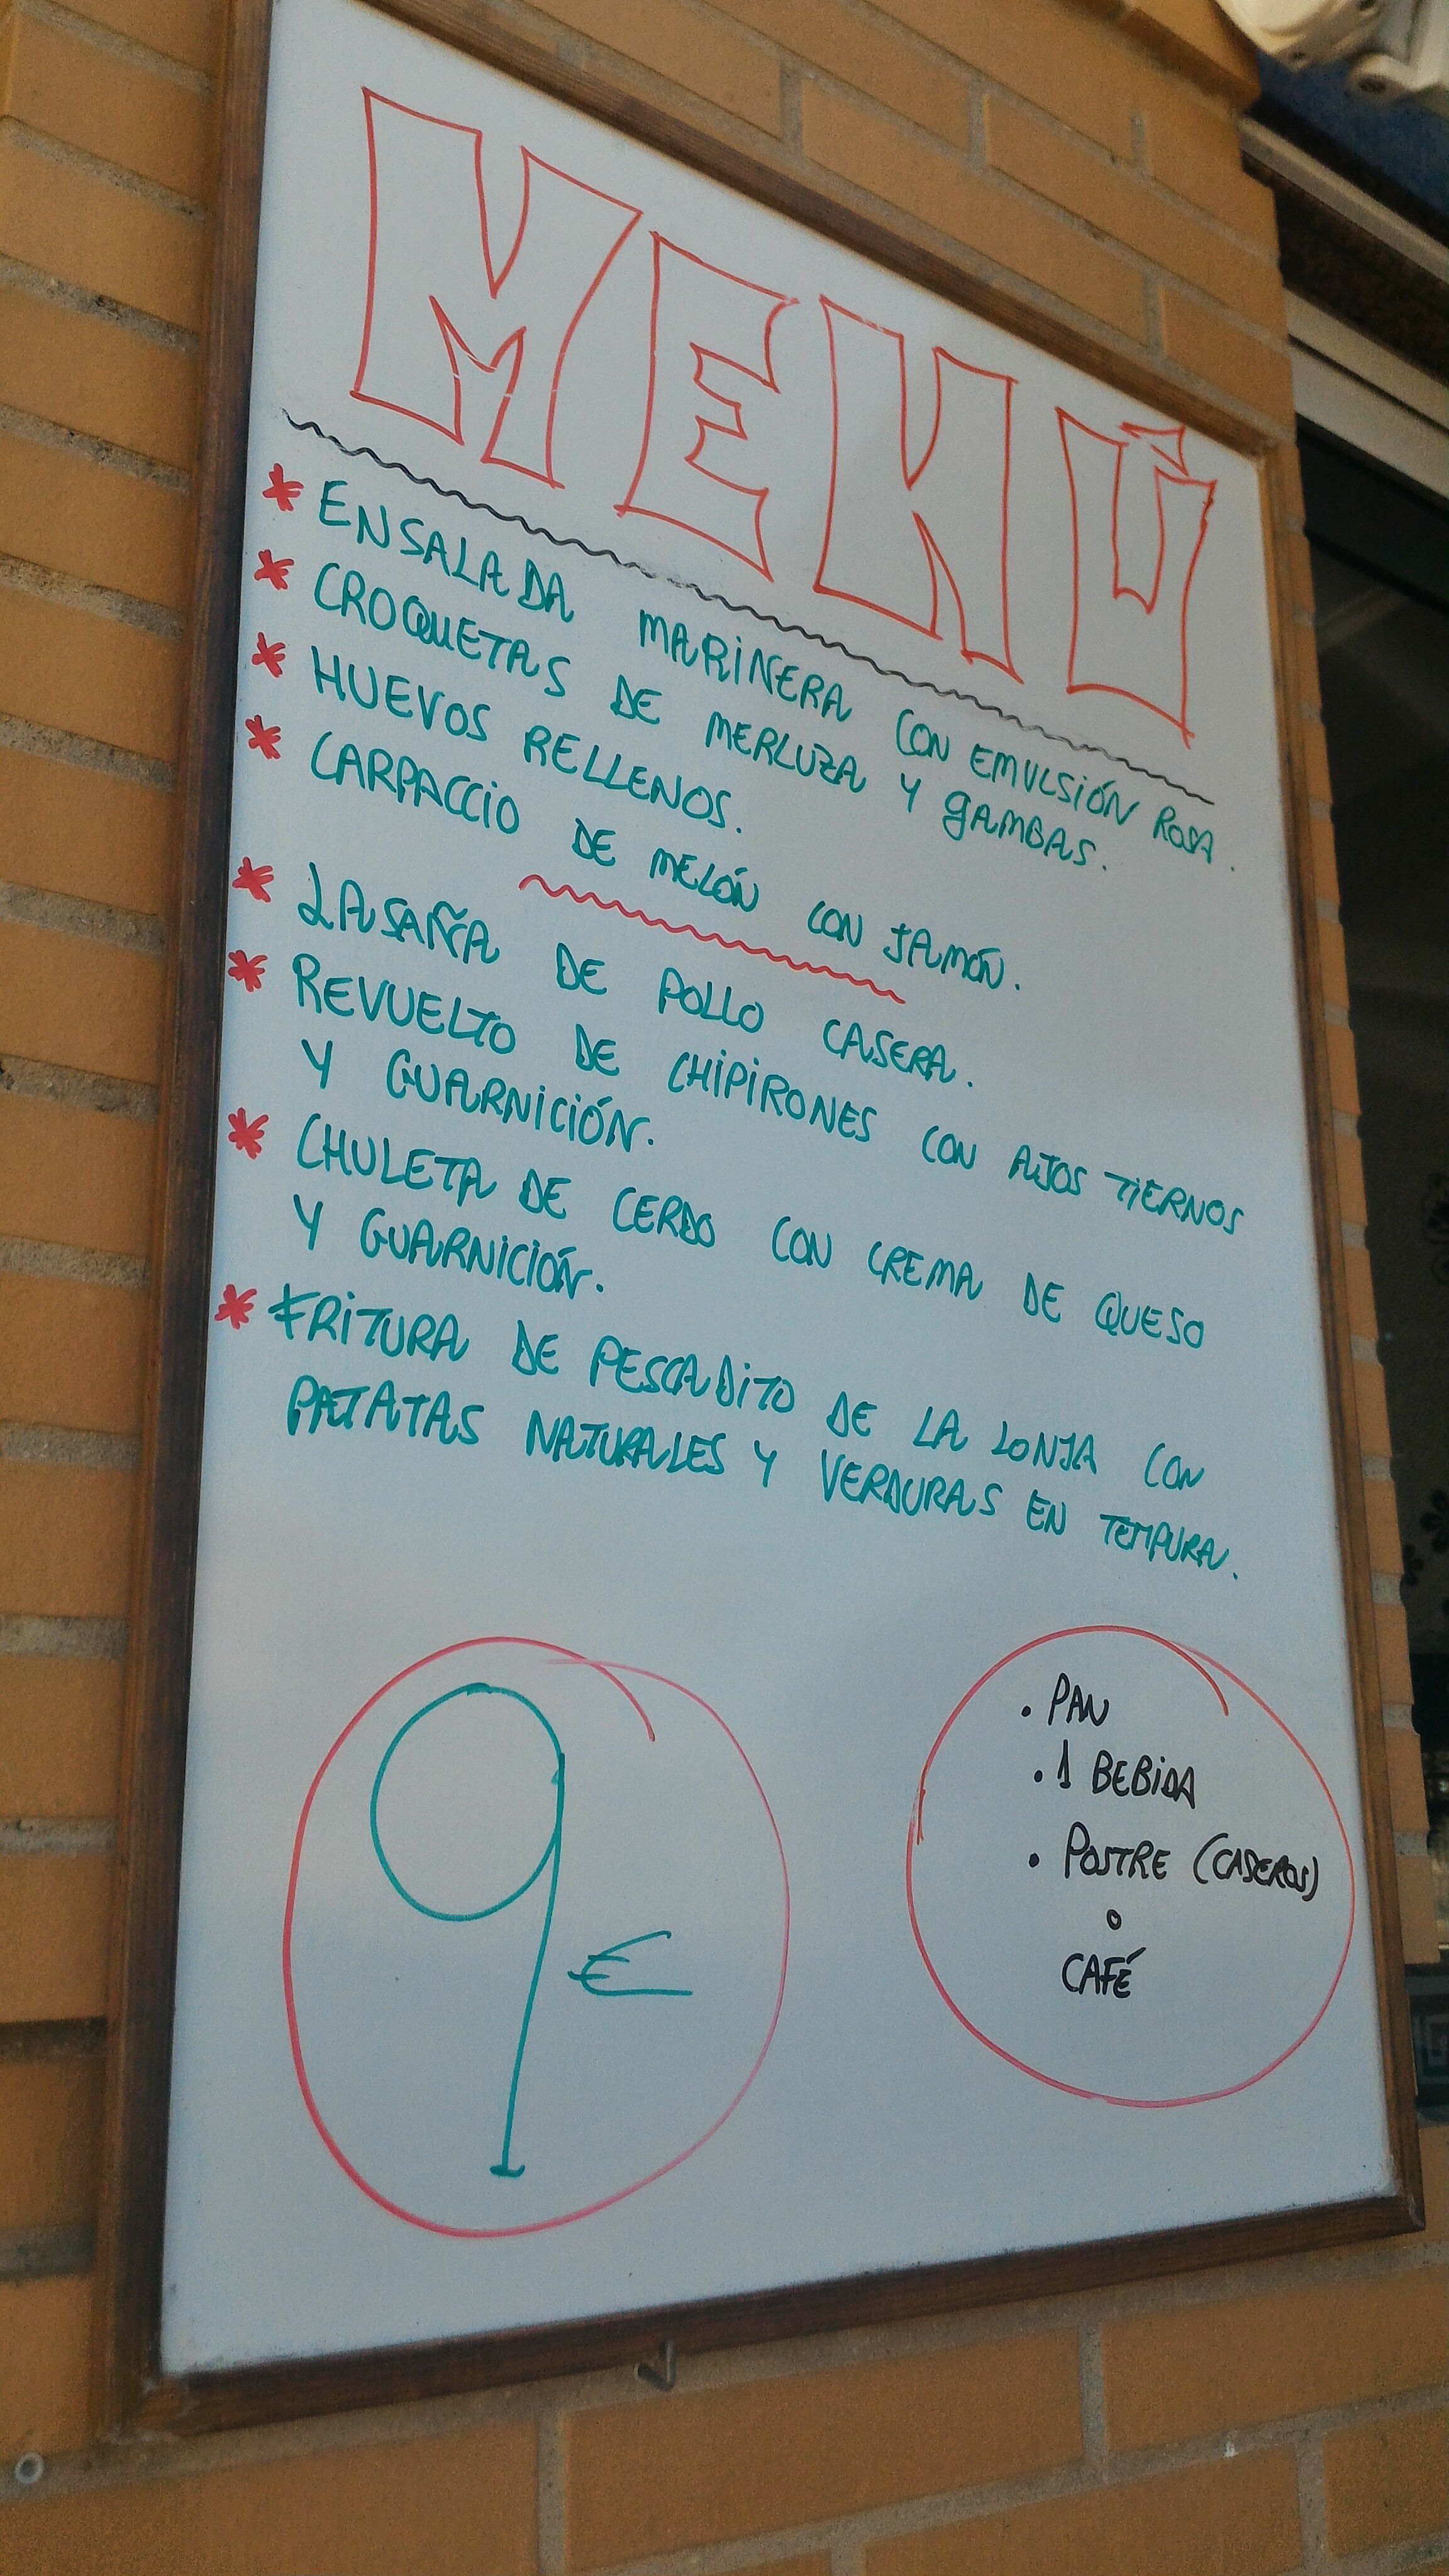 MENÚ
* ENSALADA MARINERA CON EMULSIÓN ROSA.
* CROQUETAS DE MERLUZA Y GAMBAS.
* HUEVOS RELLENOS.
* CARPACCIO DE MELÓN CON JAMÓN.
* LASAÑA DE POLLO CASERA.
* REVUELTO DE CHIPIRONES CON AJOS TIERNOS
Y GUARNICIÓN.
* CHULETA DE CERDO CON CREMA DE QUESO
Y GUARNICIÓN.
* FRITURA DE PESCADITO DE LA LONJA CON
PATATAS NATURALES Y VERDURAS EN TEMPURA.
9€
• PAN
• 1 BEBIDA
• POSTRE (CASEROS)
o
CAFÉ